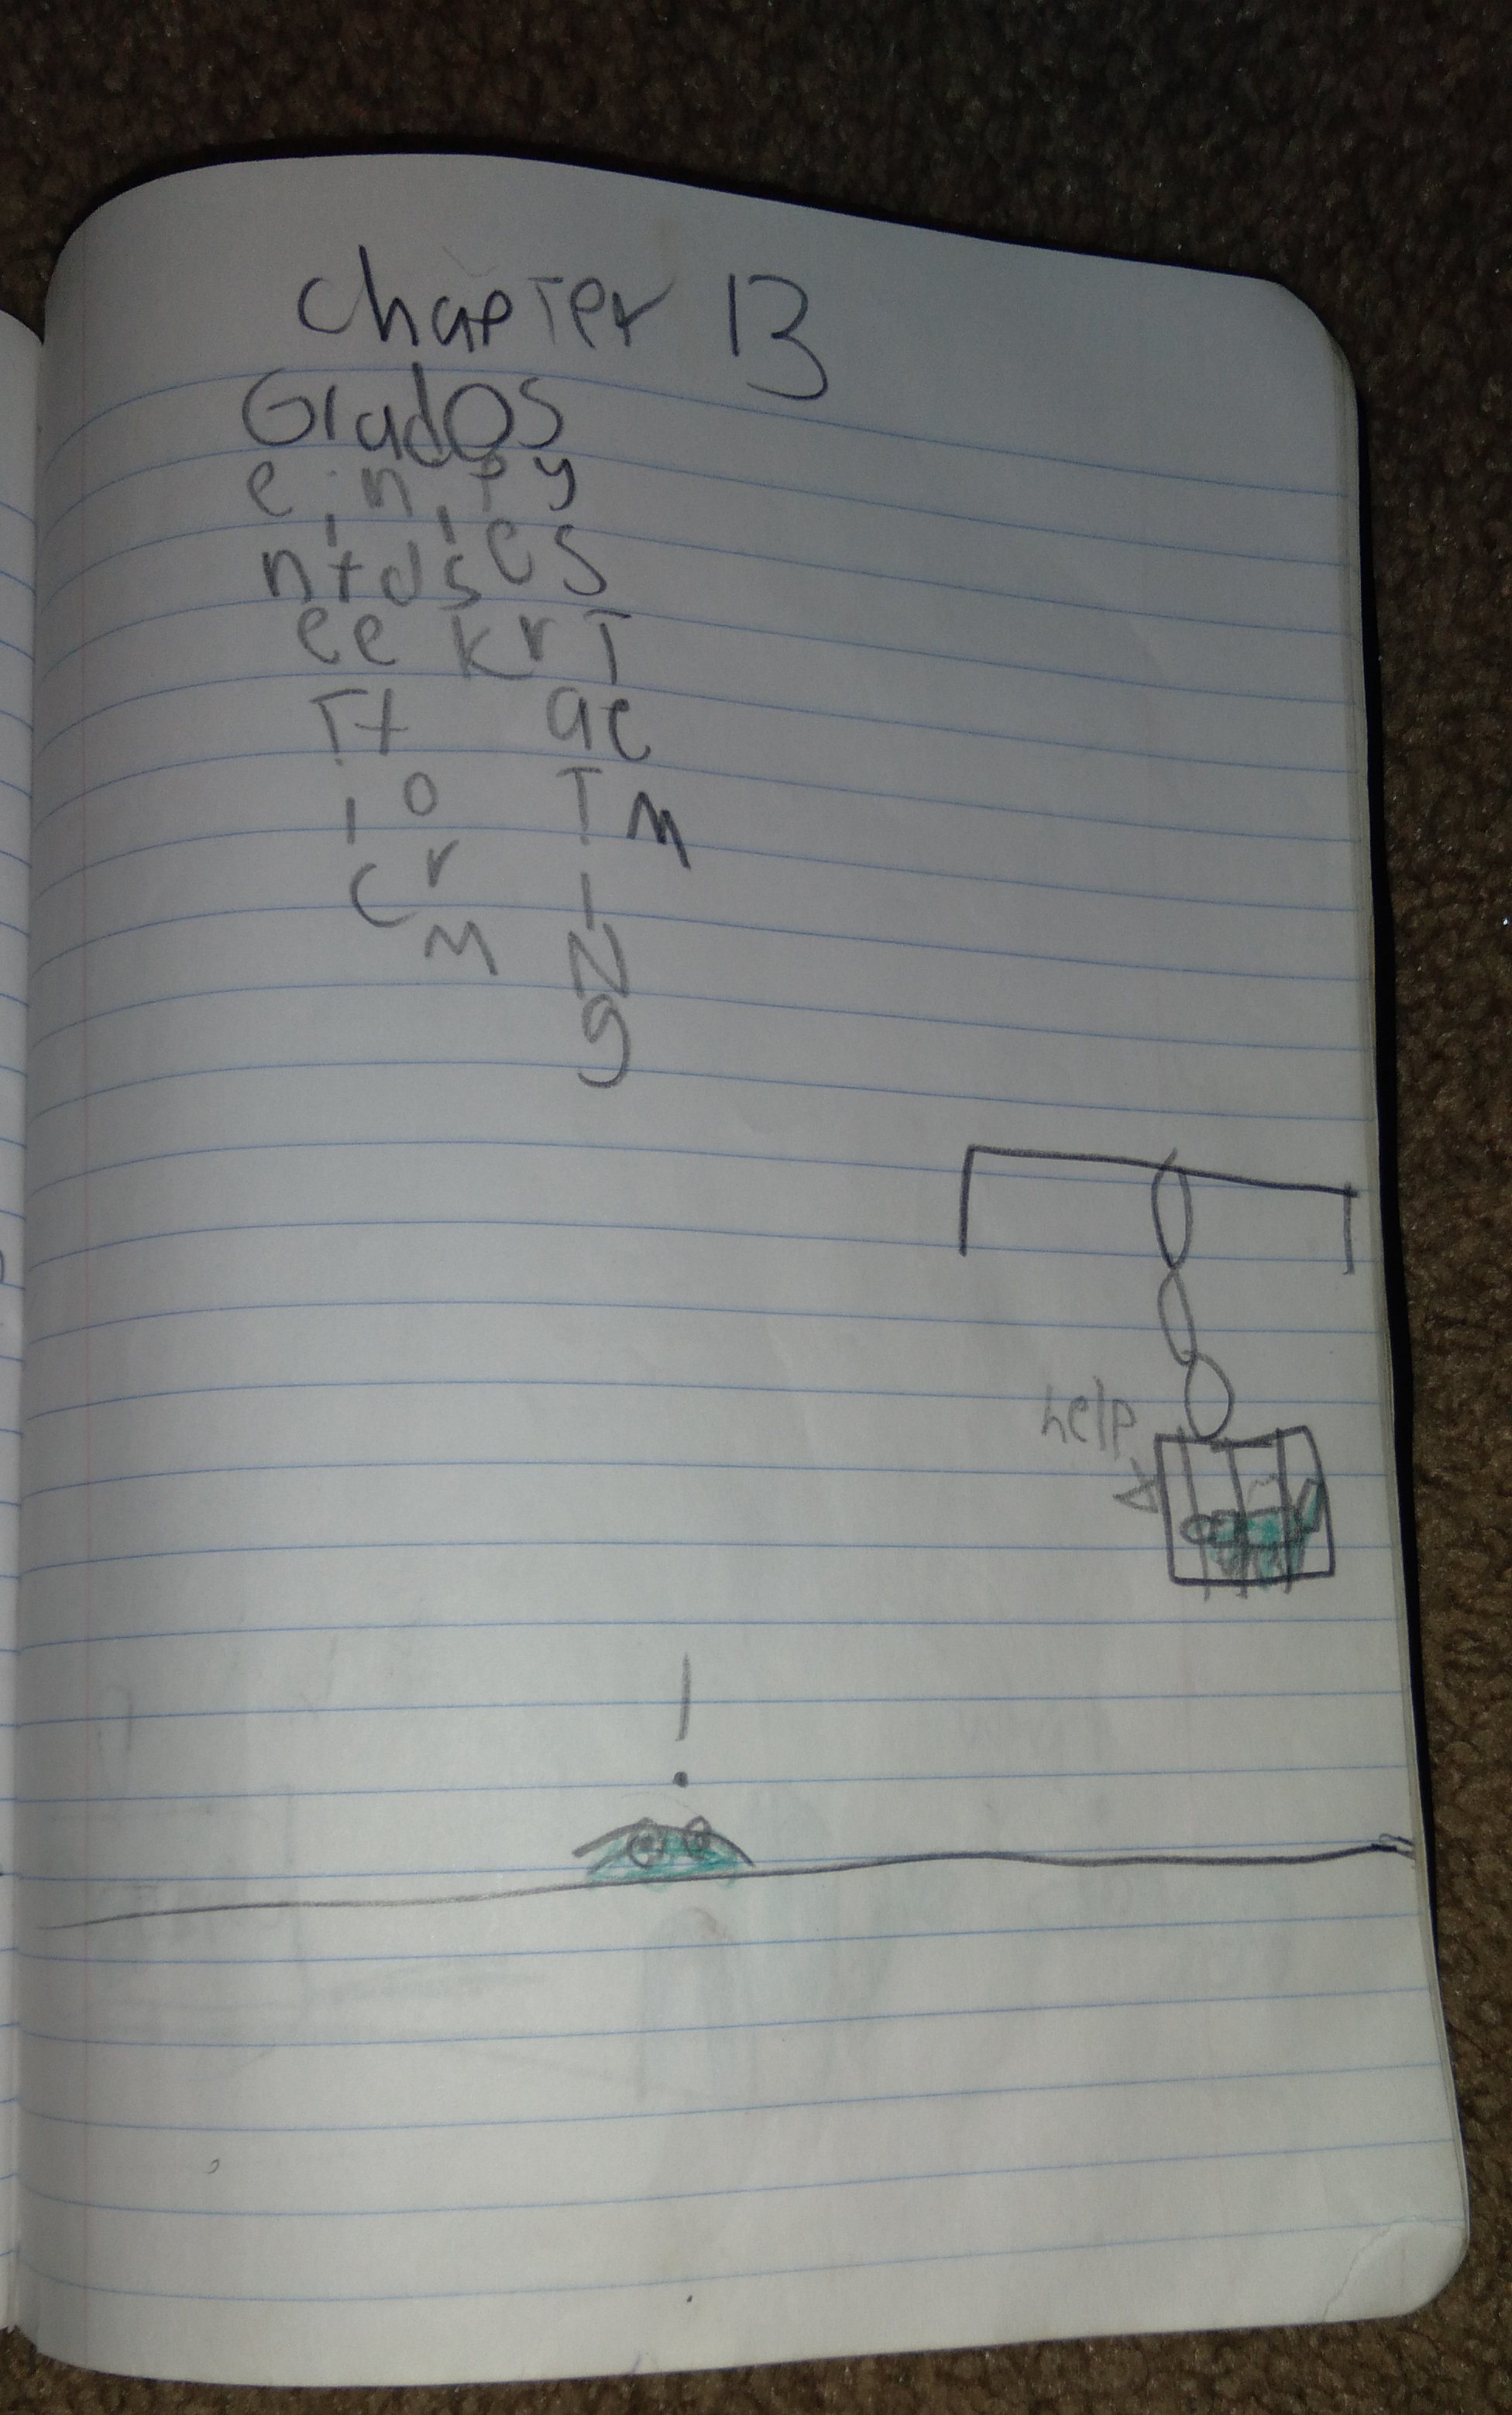 chapTer 13
GladOS
e i n i p y
n f d s e s
e e k r T
T f a e
i o T m
c r I
m N
g
help
!